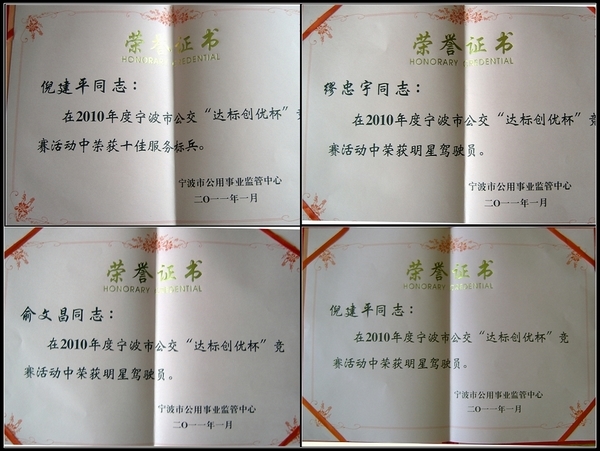 荣誉证书
HONORARY CREDENTIAL
倪建平同志：
在2010年度宁波市公交“达标创优杯”竞
赛活动中荣获十佳服务标兵。
宁波市公用事业监管中心
二〇一一年一月
荣誉证书
HONORARY CREDENTIAL
缪忠宇同志：
在2010年度宁波市公交“达标创优杯”竞
赛活动中荣获明星驾驶员。
宁波市公用事业监管中心
二〇一一年一月
荣誉证书
HONORARY CREDENTIAL
俞文昌同志：
在2010年度宁波市公交“达标创优杯”竞
赛活动中荣获明星驾驶员。
宁波市公用事业监管中心
二〇一一年一月
荣誉证书
HONORARY CREDENTIAL
倪建平同志：
在2010年度宁波市公交“达标创优杯”竞
赛活动中荣获明星驾驶员。
宁波市公用事业监管中心
二〇一一年一月